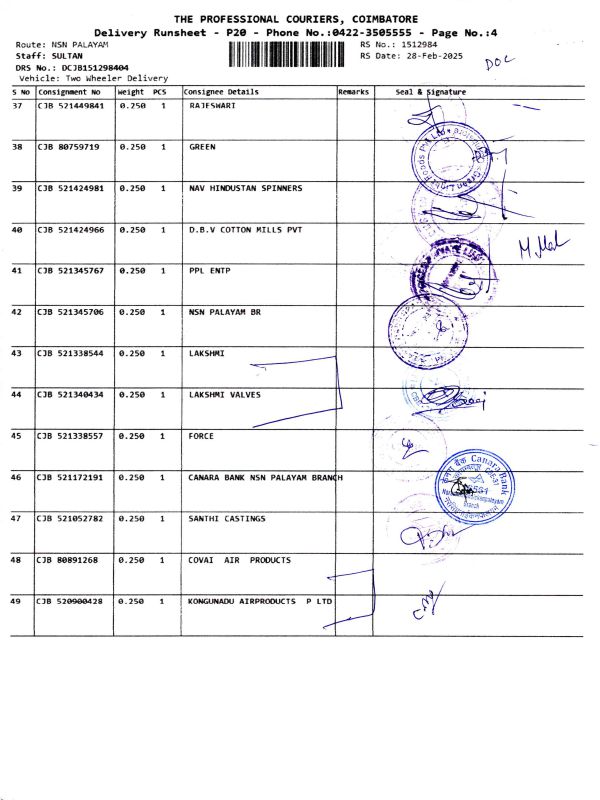 THE PROFESSIONAL COURIERS, COIMBATORE
Delivery Runsheet - P20 - Phone No.:0422-3505555 - Page No.:4
Route: NSN PALAYAM RS No.: 1512984
Staff: SULTAN RS Date: 28-Feb-2025
DOC
DRS No.: DCJB151298404
Vehicle: Two Wheeler Delivery
S No Consignment No Weight PCS Consignee Details Remarks Seal & Signature
37 CJB 521449841 0.250 1 RAJESWARI
38 CJB 80759719 0.250 1 GREEN
39 CJB 521424981 0.250 1 NAV HINDUSTAN SPINNERS
40 CJB 521424966 0.250 1 D.B.V COTTON MILLS PVT
41 CJB 521345767 0.250 1 PPL ENTP
42 CJB 521345706 0.250 1 NSN PALAYAM BR
43 CJB 521338544 0.250 1 LAKSHMI
44 CJB 521340434 0.250 1 LAKSHMI VALVES
45 CJB 521338557 0.250 1 FORCE
46 CJB 521172191 0.250 1 CANARA BANK NSN PALAYAM BRANCH
Canara Bank
47 CJB 521052782 0.250 1 SANTHI CASTINGS
48 CJB 80891268 0.250 1 COVAI AIR PRODUCTS
49 CJB 520900428 0.250 1 KONGUNADU AIRPRODUCTS P LTD